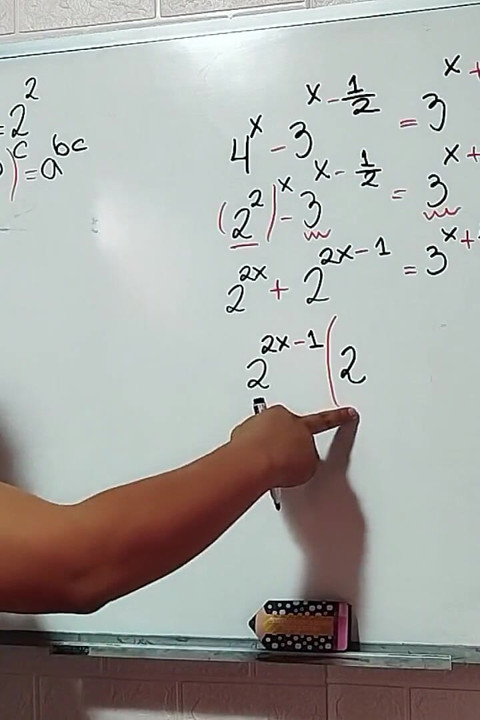 =2^2
)^c=a^{bc}
4^x-3^{x-\frac{1}{2}}=3^{x+
(2^2)^x-3^{x-\frac{1}{2}}=3^{x+
2^{2x}+2^{2x-1}=3^{x+
2^{2x-1}(2